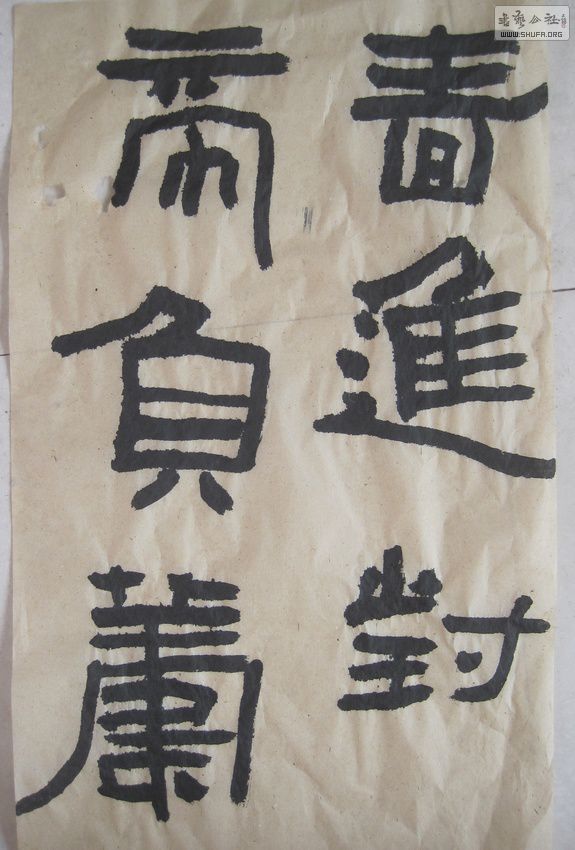 书艺公社
WWW.SHUFA.ORG
嗇進對
而負蕭